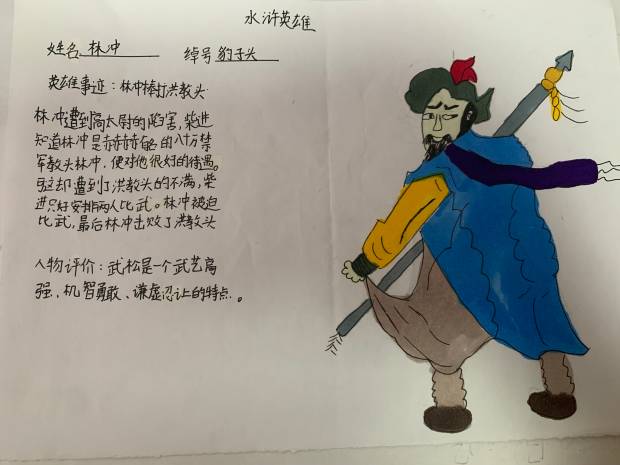 水浒英雄
姓名 林冲 绰号 豹子头
英雄事迹：林冲棒打洪教头
林冲遭到高太尉的陷害，柴进
知道林冲是赫赫有名的八十万禁
军教头林冲，便对他很好的待遇。
这却遭到了洪教头的不满，柴
进只好安排两人比武。林冲被迫
比武，最后林冲击败了洪教头
人物评价：武松是一个武艺高
强、机智勇敢、谦虚忍让的特点。